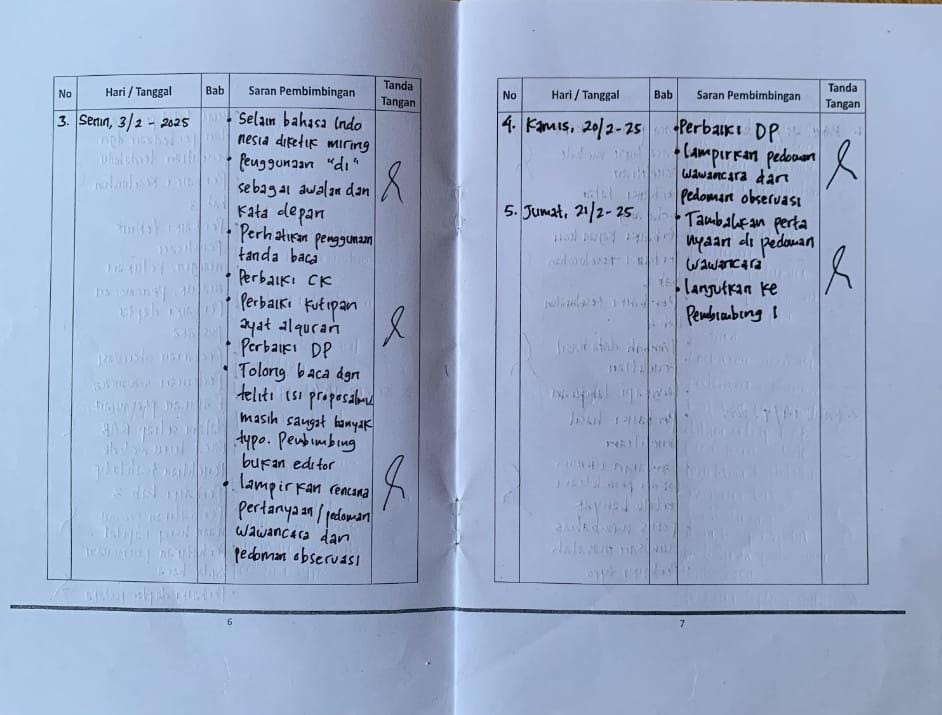 No Hari / Tanggal Bab Saran Pembimbingan Tanda Tangan
3. Senin, 3/2 - 2025
• Selain bahasa Indo
nesia diketik miring
• Penggunaan "di"
sebagai awalan dan
kata depan
• Perhatikan penggunaan
tanda baca
• Perbaiki CK
• Perbaiki kutipan
ayat alquran
• Perbaiki DP
• Tolong baca dgn
teliti isi proposalmu
masih sangat banyak
typo. Pembimbing
bukan editor
• Lampirkan rencana
pertanyaan/pedoman
wawancara dan
pedoman observasi
6
No Hari / Tanggal Bab Saran Pembimbingan Tanda Tangan
4. Kamis, 20/2-25
• Perbaiki DP
• Lampirkan pedoman
wawancara dan
pedoman observasi
5. Jumat, 21/2-25
• Tambahkan perta
nyaan di pedoman
wawancara
• Lanjutkan ke
Pembimbing 1
7